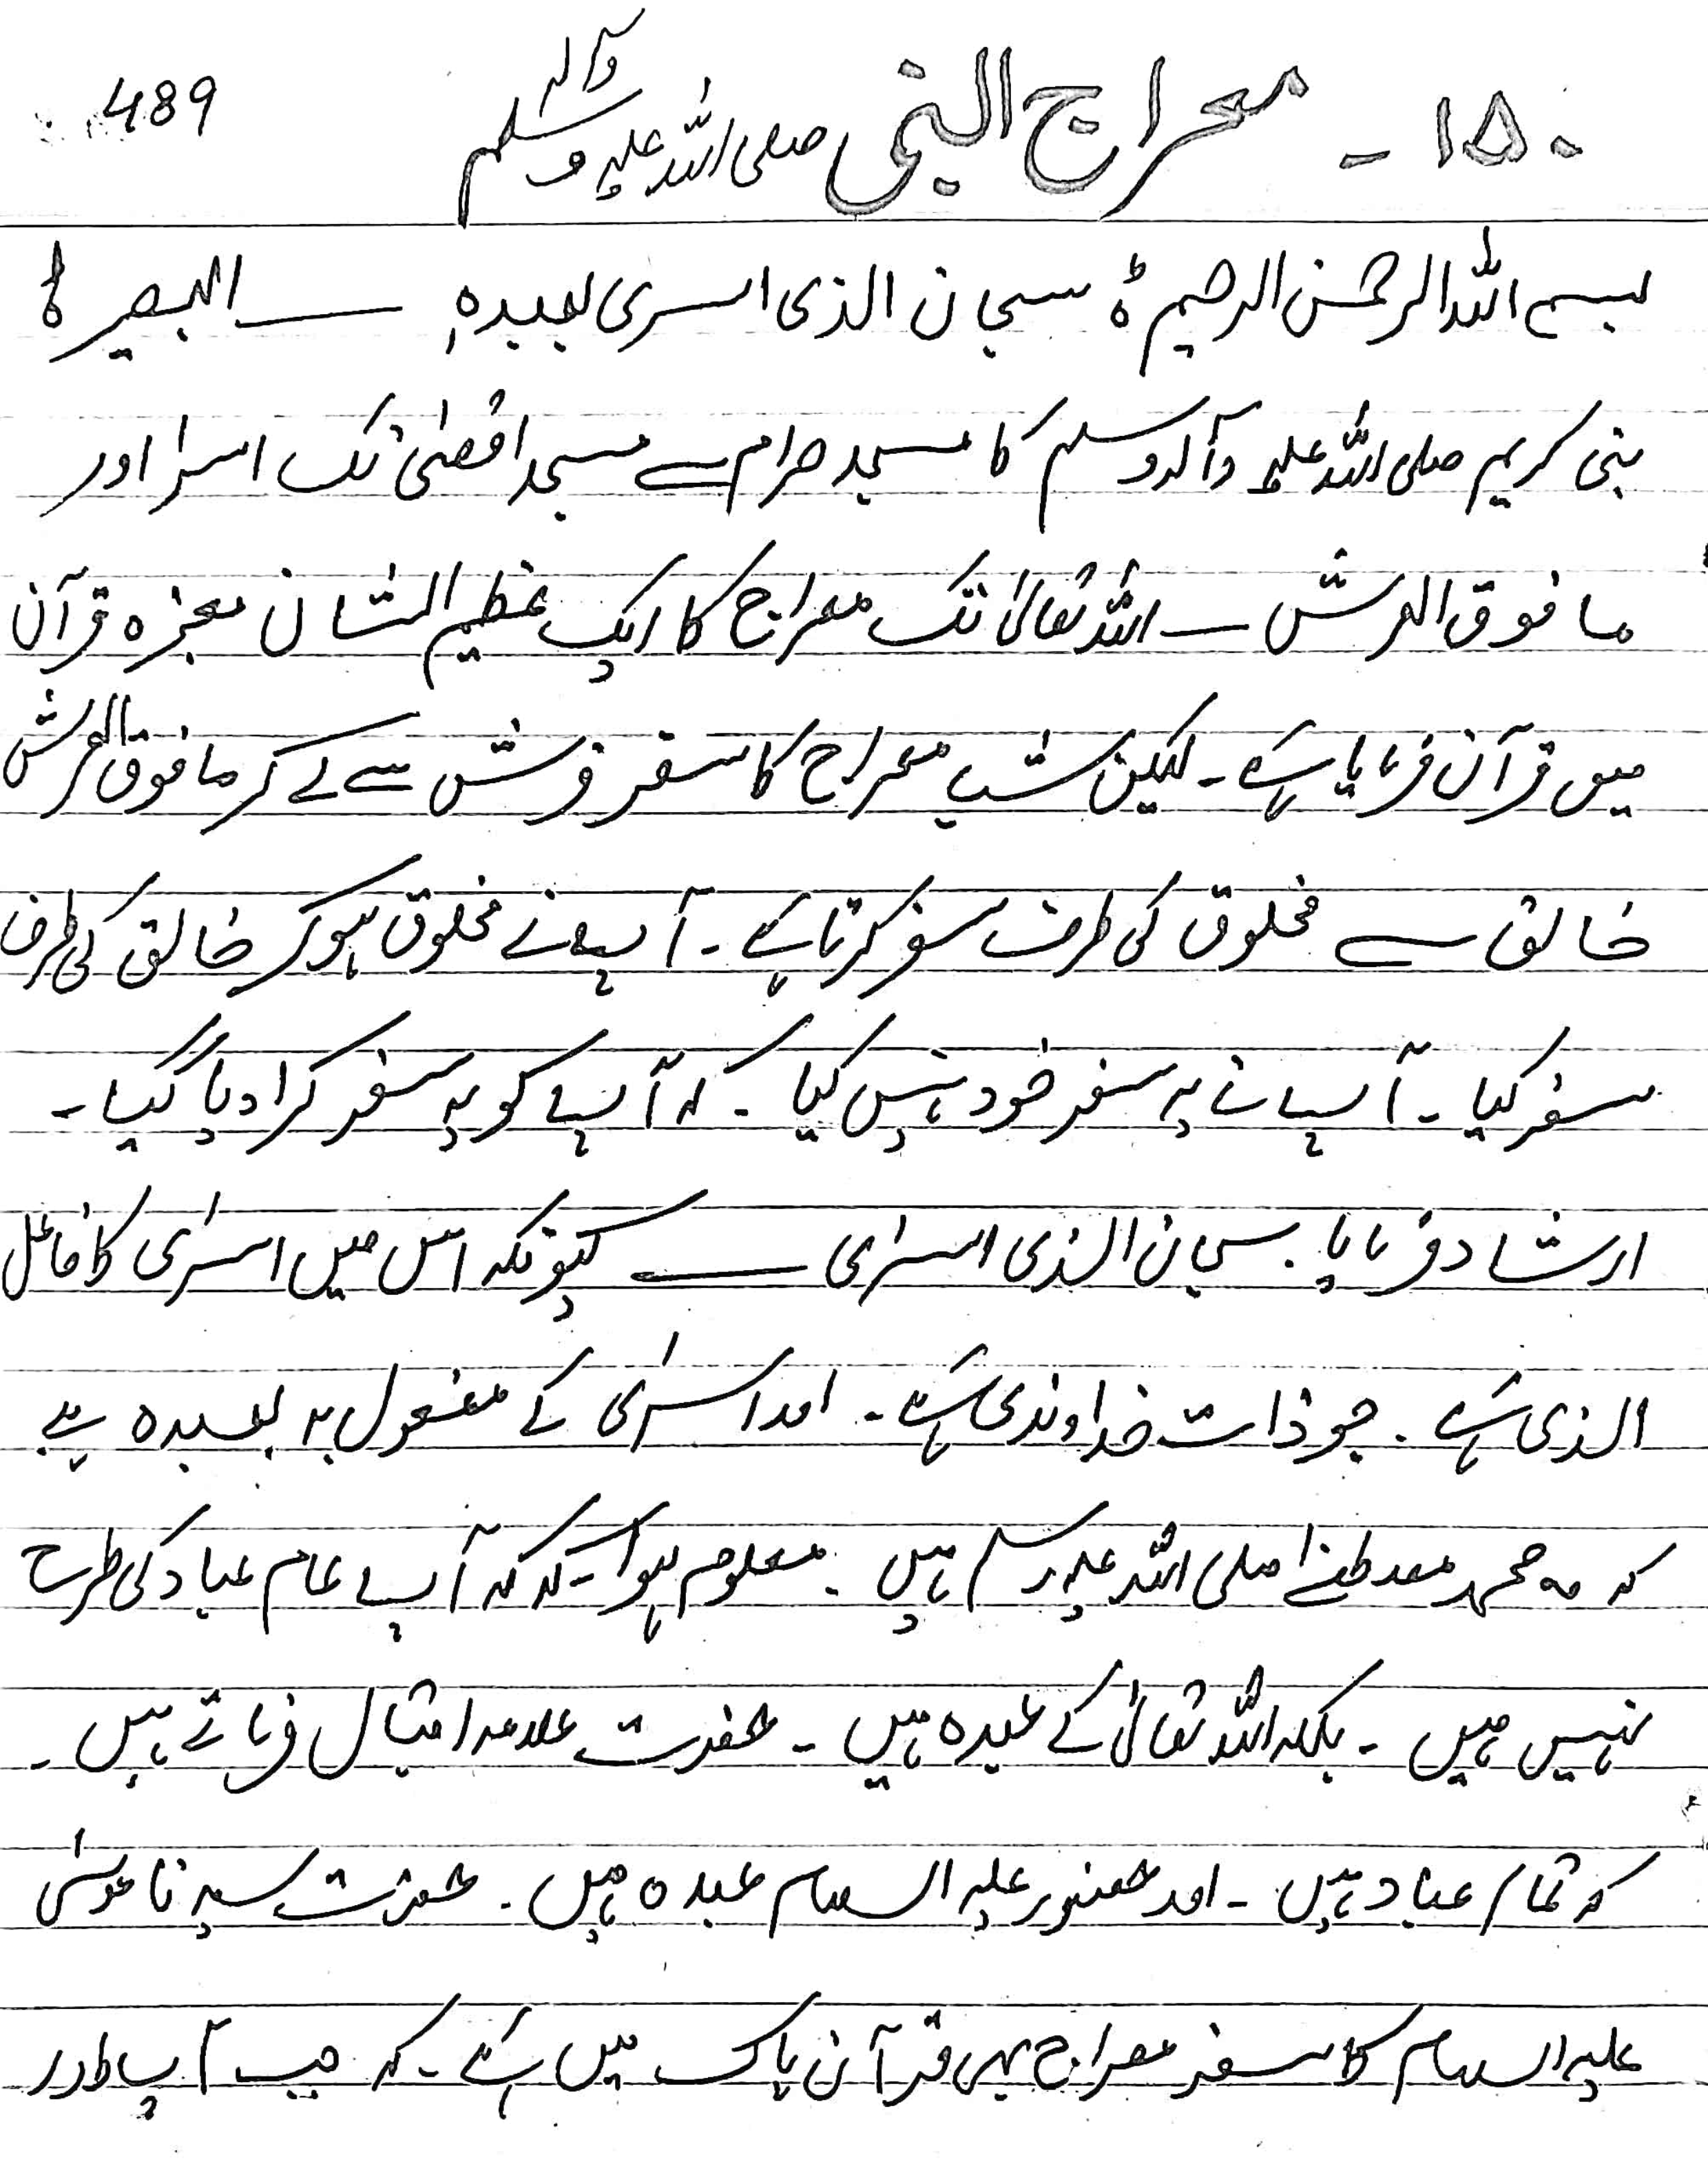 489
۱۵۰ - معراج النبی صلی اللہ علیہ وآلہ وسلم
بسم اللہ الرحمٰن الرحیم ہ سبحان الذی اسری بعبدہٖ ـــ البصیر ہ
نبی کریم صلی اللہ علیہ وآلہ وسلم کا مسجد حرام سے مسجد اقصیٰ تک اسرا اور
مافوق العرش ـ اللہ تعالیٰ تک معراج کا ایک عظیم الشان معجزہ قرآن
میں قرآن فرمایا ہے ۔ لیکن شب معراج کا سفر فرش سے لے کر مافوق العرش
خالق سے مخلوق کی طرف سفر کرتا ہے ۔ آپ نے مخلوق ہوکر خالق کی طرف
سفر کیا ۔ آپ نے یہ سفر خود نہیں کیا ۔ کہ آپ کو یہ سفر کرا دیا گیا ۔
ارشاد فرمایا . سبحان الذی اسرٰی ـــ کیونکہ اس میں اسرٰی کا فاعل
الذی ہے . جو ذات خداوندی ہے ۔ اور اسرٰی کے مفعول بہ بعبدہ ہے
کہ محمد مصطفےٰ صلی اللہ علیہ وسلم ہیں . معلوم ہوا ۔ کہ کہ آپ عام عباد کی طرح
نہیں ہیں ۔ بلکہ اللہ تعالیٰ کے عبدہ ہیں ۔ حضرت علامہ اقبال فرماتے ہیں ۔
کہ تمام عباد ہیں ۔ اور حضور علیہ السلام عبدہ ہیں . حضرت سیدنا موسٰی
علیہ السلام کا سفر معراج بھی قرآن پاک میں ہے ۔ کہ جب آپ طور